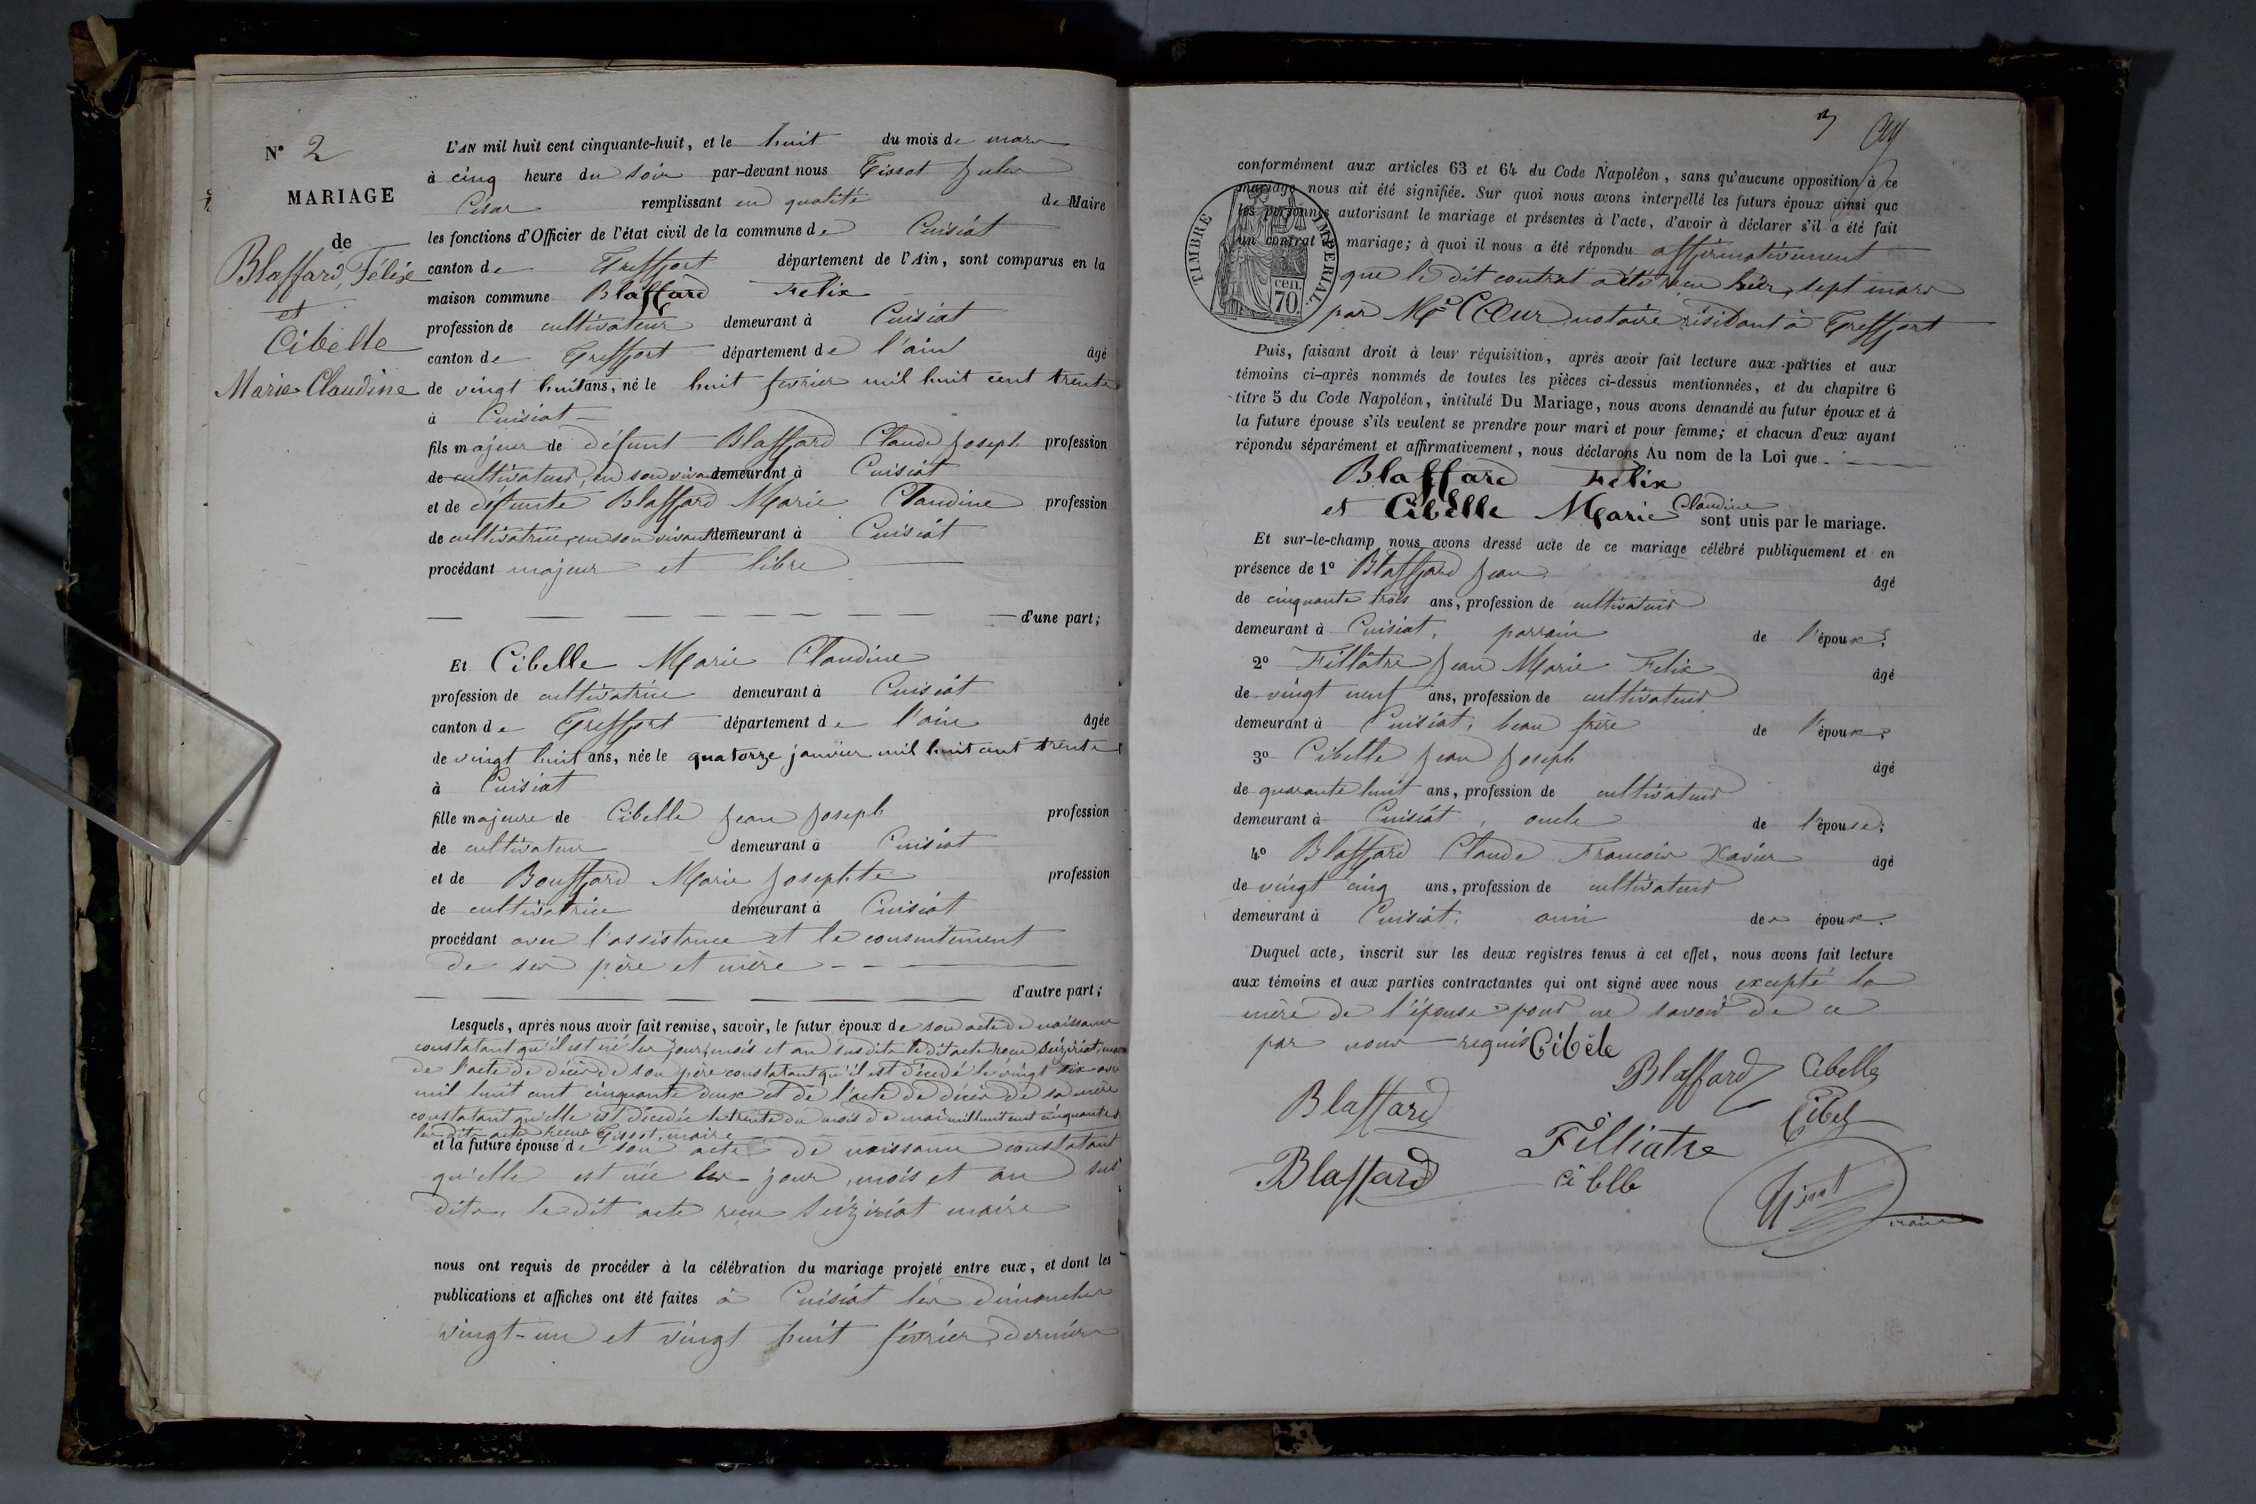 N° 2
MARIAGE
de
Blaffard, Félix
et
Cibelle
Marie Claudine
L'AN mil huit cent cinquante-huit, et le huit du mois de mars
à cinq heure du soir par-devant nous Tissot Jules
César remplissant en qualité de Maire
les fonctions d'Officier de l'état civil de la commune de Cuisiat
canton de Treffort département de l'Ain, sont comparus en la
maison commune Blaffard Felix
profession de cultivateur demeurant à Cuisiat
canton de Treffort département de l'ain âgé
de vingt huit ans, né le huit fevrier mil huit cent trente
à Cuisiat
fils majeur de défunt Blaffard Claude Joseph profession
de cultivateur, en son vivant demeurant à Cuisiat
et de défunte Blaffard Marie Claudine profession
de cultivatrice, en son vivant demeurant à Cuisiat
procédant majeur et libre
d'une part;
Et Cibelle Marie Claudine
profession de cultivatrice demeurant à Cuisiat
canton de Treffort département de l'ain âgée
de vingt huit ans, née le quatorze janvier mil huit cent trente
à Cuisiat
fille majeure de Cibelle Jean Joseph profession
de cultivateur demeurant à Cuisiat
et de Bouffard Marie Josephte profession
de cultivatrice demeurant à Cuisiat
procédant avec l'assistance et le consentement
de ses père et mère
d'autre part;
Lesquels, après nous avoir fait remise, savoir, le futur époux de son acte de naissance
constatant qu'il est né les jour, mois et an susdits le dit acte recu
de l'acte de décès de son père constatant qu'il est décédé le vingt
mil huit cent cinquante deux et de l'acte de décès de sa mère
constatant qu'elle est décédée le trente du mois de mai mil huit cent cinquante
les dits actes recus Tissot, maire
et la future épouse de son acte de naissance constatant
qu'elle est née les jour, mois et an sus
dits, le dit acte recu maire
nous ont requis de procéder à la célébration du mariage projeté entre eux, et dont les
publications et affiches ont été faites à Cuisiat les dimanches
vingt-un et vingt huit février derniers
3
conformément aux articles 63 et 64 du Code Napoléon, sans qu'aucune opposition à ce
mariage nous ait été signifiée. Sur quoi nous avons interpellé les futurs époux ainsi que
les personnes autorisant le mariage et présentes à l'acte, d'avoir à déclarer s'il a été fait
un contrat mariage; à quoi il nous a été répondu affirmativement
TIMBRE IMPERIAL.
70 cen.
que le dit contrat a été recu hier, sept mars
par Me notaire résidant à Treffort
Puis, faisant droit à leur réquisition, après avoir fait lecture aux parties et aux
témoins ci-après nommés de toutes les pièces ci-dessus mentionnées, et du chapitre 6
titre 5 du Code Napoléon, intitulé Du Mariage, nous avons demandé au futur époux et à
la future épouse s'ils veulent se prendre pour mari et pour femme; et chacun d'eux ayant
répondu séparément et affirmativement, nous déclarons Au nom de la Loi que
Blaffard Felix
et Cibelle Marie Claudine sont unis par le mariage.
Et sur-le-champ nous avons dressé acte de ce mariage célébré publiquement et en
présence de 1° Blaffard Jean âgé
de cinquante trois ans, profession de cultivateur
demeurant à Cuisiat, parrain de l'époux;
2° Fillâtre Jean Marie Felix âgé
de vingt neuf ans, profession de cultivateur
demeurant à Cuisiat, beau frère de l'époux;
3° Cibelle Jean Joseph âgé
de quarante huit ans, profession de cultivateur
demeurant à Cuisiat, oncle de l'épouse;
4° Blaffard Claude Francois Xavier âgé
de vingt cinq ans, profession de cultivateur
demeurant à Cuisiat, ami des époux.
Duquel acte, inscrit sur les deux registres tenus à cet effet, nous avons fait lecture
aux témoins et aux parties contractantes qui ont signé avec nous excepté la
mère de l'épouse pour ne savoir de ce
par nous requis Cibèle
Blaffard Cibelle
Blaffard Cibel
Filliatre
Blaffard ciblle
Tissot maire